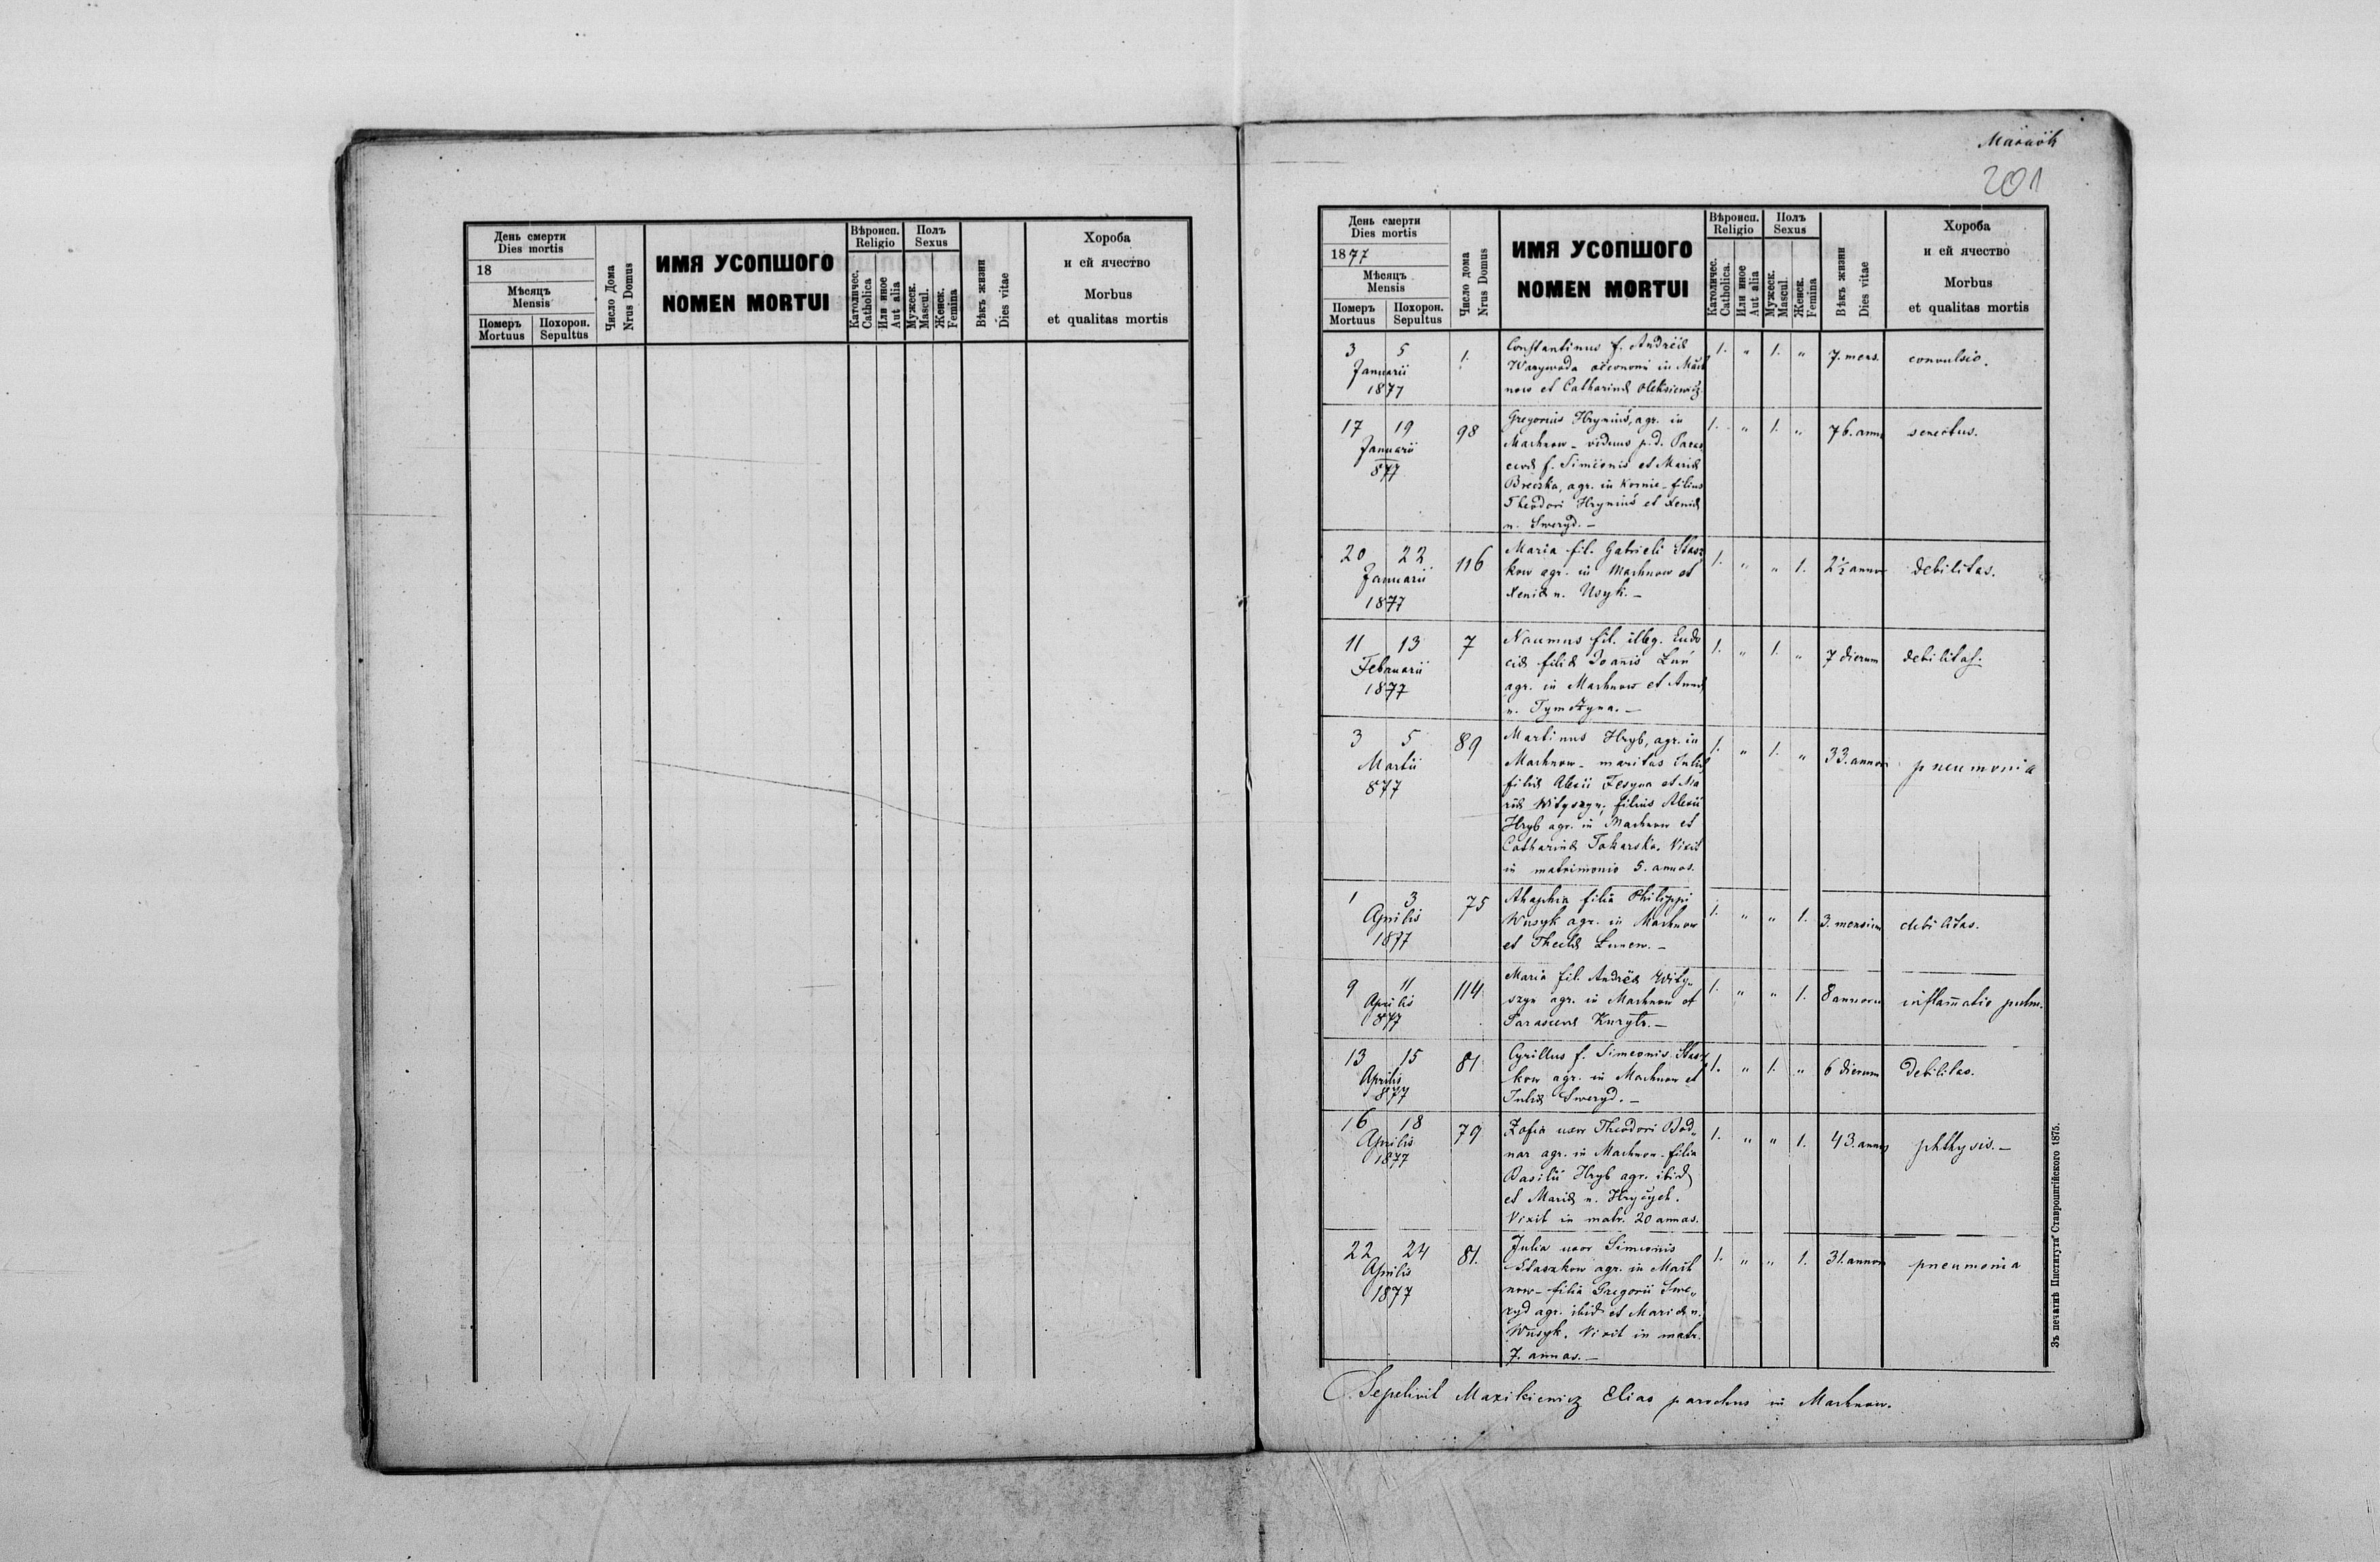 День смерти
Dies mortis
18
Мѣсяцъ
Mensis
Померъ
Mortuus
Похорон.
Sepultus
Число Дома
Nrus Domus
ИМЯ УСОПШОГО
NOMEN MORTUI
Вѣроисп.
Religio
Католичес.
Catholica
Или иное
Aut alia
Полъ
Sexus
Мужеск.
Mascul.
Женск.
Femina
Вѣкъ жизни
Dies vitae
Хороба
и ей ячество
Morbus
et qualitas mortis
201
День смерти
Dies mortis
1877
Мѣсяцъ
Mensis
Померъ
Mortuus
Похорон.
Sepultus
Число дома
Nrus Domus
ИМЯ УСОПШОГО
NOMEN MORTUI
Вѣроисп.
Religio
Католичес.
Catholica.
Или иное
Aut alia
Полъ
Sexus
Мужеск.
Mascul.
Женск.
Femina
Вѣкъ жизни
Dies vitae
Хороба
и ей ячество
Morbus
et qualitas mortis
3 5
Januarii
1877
1.
Constantinus f. Andreæ
Warywoda oeconomi in Mach
now et Catharinæ Oleksiewicz
1. " 1. "
7. mens.
convulsio.
17 19
Januarii
877
98
Gregorius Hryniuś, agr. in
Machnow - viduus p. d. Paras
cevæ f. Simeonis et Mariæ
agr. in Kornie - filius
Theodori Hryniuś et Xeniæ
n. Sweryd. -
1. " 1. "
76. ann.
senectus.
20 22
Januarii
1877
116
Maria fil. Gabrieli Stasz
kow agr. in Machnow et
Xeniæ n. Usyk. -
1. " " 1.
2 1/2 annor
debilitas.
11 13
Februarii
1877
7
Naumus fil. illeg. Eudo
ciæ filiæ Joanis Łuń
agr. in Machnow et Annæ
n.
1. " 1. "
7 dierum
debilitas.
3 5
Martii
877
89
Martinus Hryb, agr. in
Machnow - maritus Juliæ
filiæ Alexii et Ma
riæ Wityszyn; filius Alexii
Hryb agr. in Machnow et
Catharinæ Tokarska. Vixit
in matrimonio 5. annos.
1. " 1. "
33. annor
pneumonia
1 3
Aprilis
1877
75
Ahaphia filia Philippi
Wusyk agr. in Machnow
et Theclæ Łunew. -
1. " " 1.
3. mensium
debilitas.
9 11
Aprilis
877
114
Maria fil. Andreæ Wity„
szyn agr. in Machnow et
Parascevæ -
1. " " 1.
8 annorum
inflam̄atio pulm.
13 15
Aprilis
877
81
Cyrillus f. Simeonis Stasz
kow agr. in Machnow et
Juliæ Sweryd. -
1. " 1. "
6 dierum
Debilitas.
16 18
Aprilis
1877
79
Zofia uxor Theodori Bod„
nar agr. in Machnow - filia
Basilii Hryb agr. ibid
et Mariæ n.
Vixit in matr. 20 annos.
1. " " 1.
43. annor
phthysis. -
22 24
Aprilis
1877
81.
Julia uxor Simeonis
Staszkow agr. in Mach
now - filia Gregorii Swe„
ryd agr. ibid et Mariæ n.
Wusyk. Vixit in matr.
7. annos. -
1. " " 1.
31. annor
pneumonia
Sepelivit Maxikiewicz Elias parochus in Machnow.
Зъ печатнѣ Института Ставропигійского 1875.